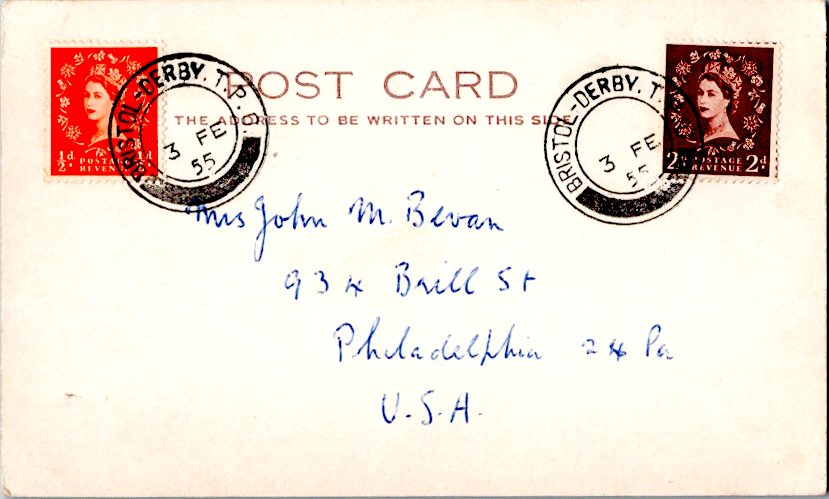 POST CARD
THE ADDRESS TO BE WRITTEN ON THIS SIDE
½d POSTAGE ½d
REVENUE
BRISTOL-DERBY. T.P.
3 FE
55
BRISTOL-DERBY. T.
3 FE
55
2d POSTAGE 2d
REVENUE
Mrs John M. Bevan
934 Brill St
Philadelphia 24 Pa
U.S.A.